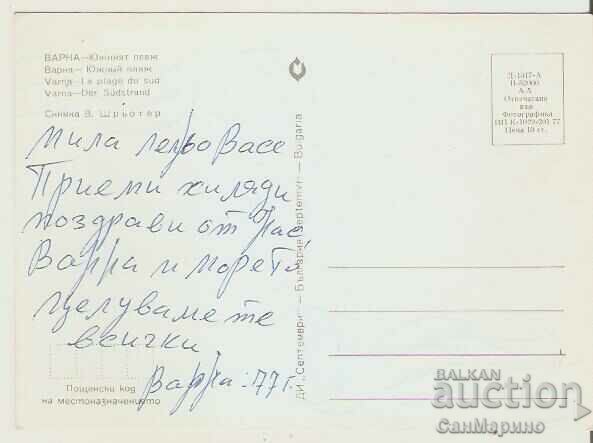 ВАРНА—Южният плаж
Варна — Южный пляж
Varna—La plage du sud
Varna—Der Südstrand
Снимка В. Шрьотер
Мила лельо Васе
Приеми хиляди
поздрави от нас,
Варна и морето
Целуваме те
всички
Варна: 77 г.
Пощенски код
на местоназначението
ДИ „Септември" — България
"Septemvri" — Bulgaria
Д-1017-А
А-А
Отпечатано
във
Фотографика
Цена 10 ст.
BALKAN
auction
СанМарино